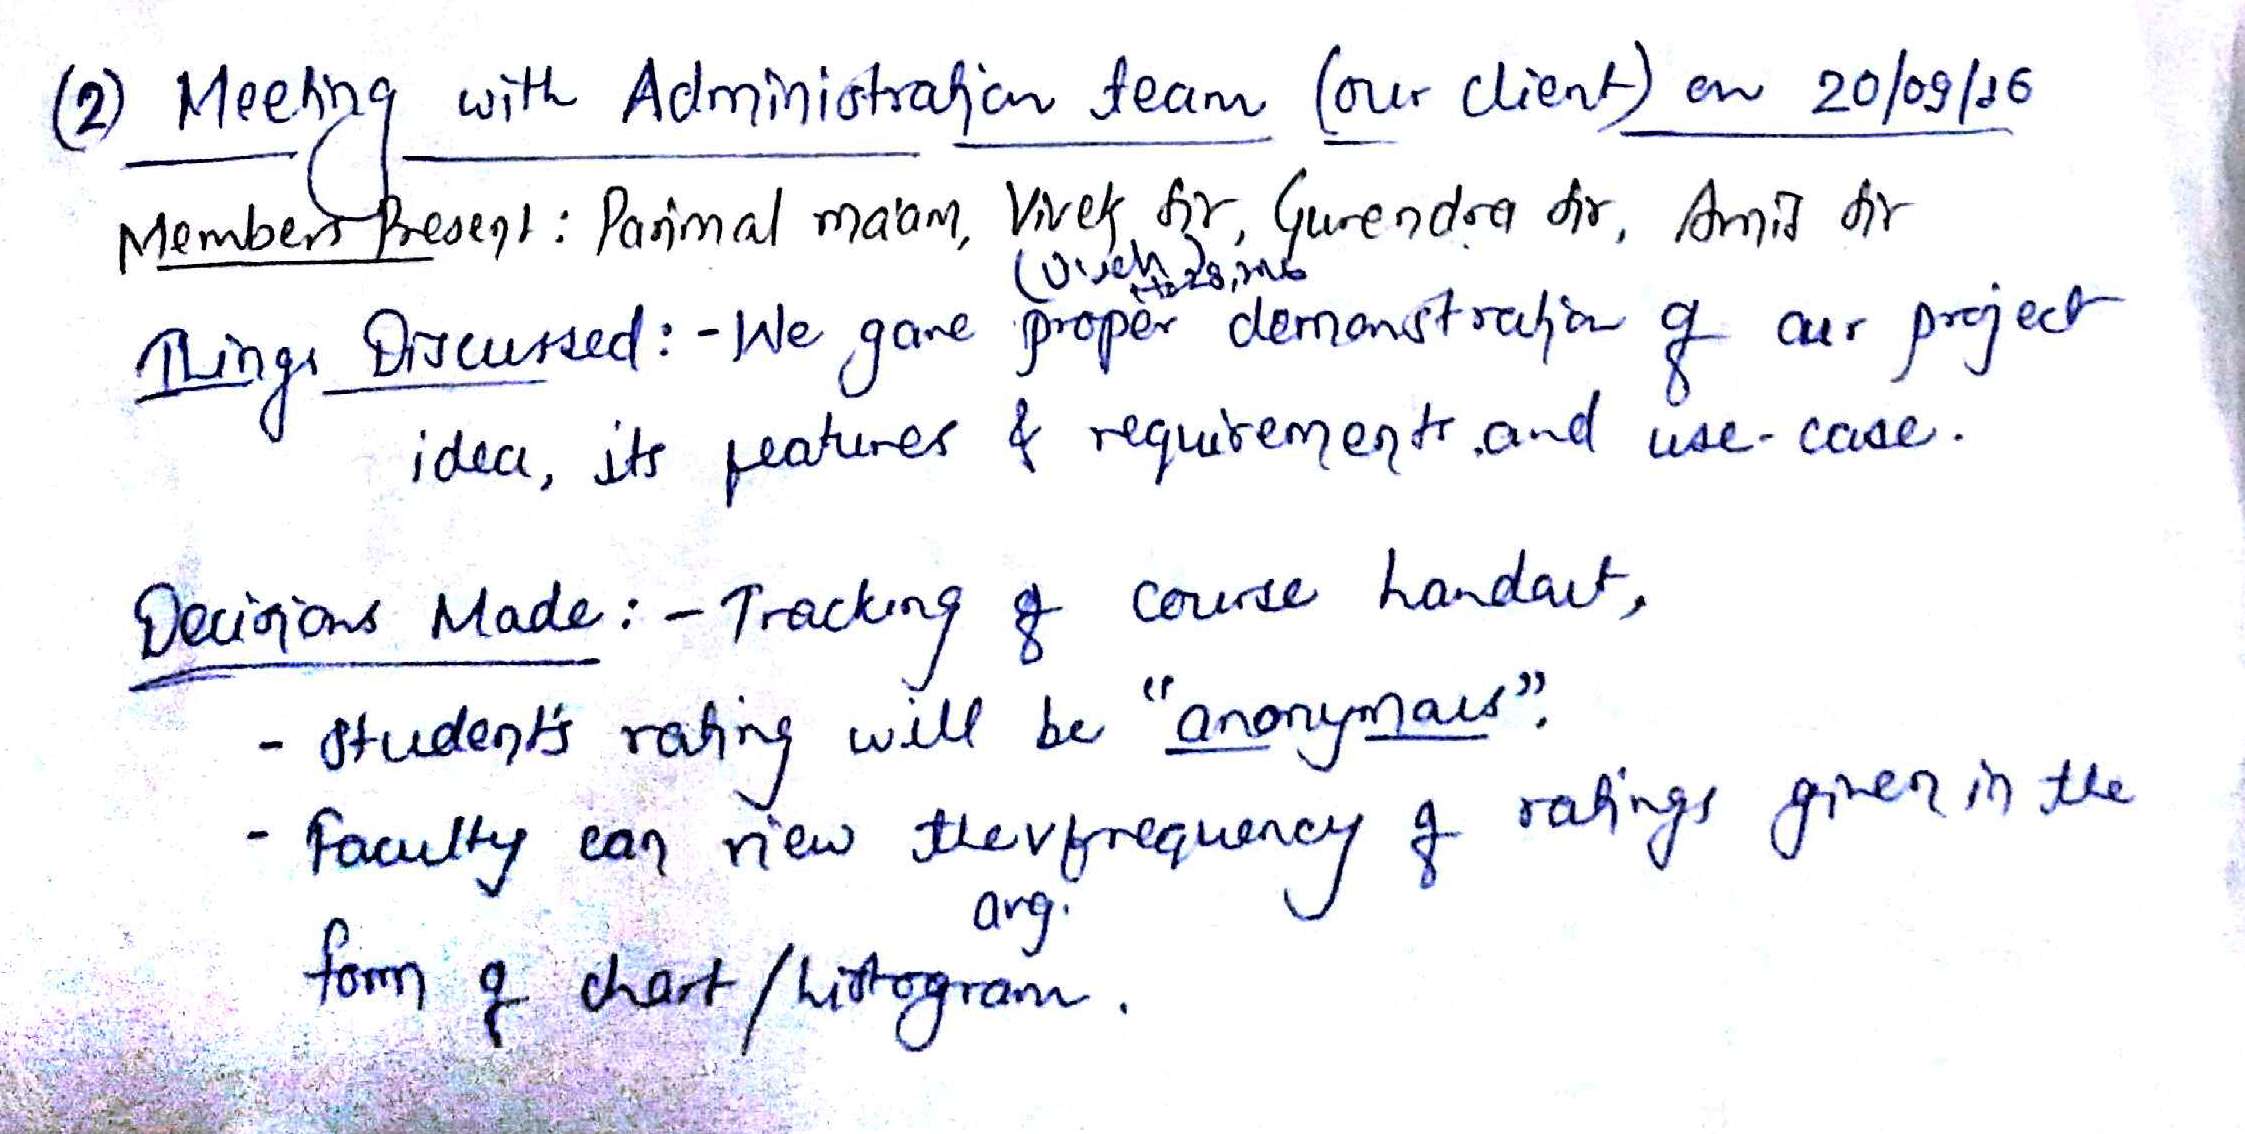 (2) Meeting with Administration team (our client) on 20/09/16
Members Present: Parimal ma'am, Vivek sir, Gurendra sir, Amit sir
Things Discussed: - We gave proper demonstration of our project
idea, its features & requirements and use-case.
Decisions Made: - Tracking of course handout,
- Student's rating will be "anonymous".
- Faculty can view the frequency of ratings given in the
avg.
form of chart/histogram.